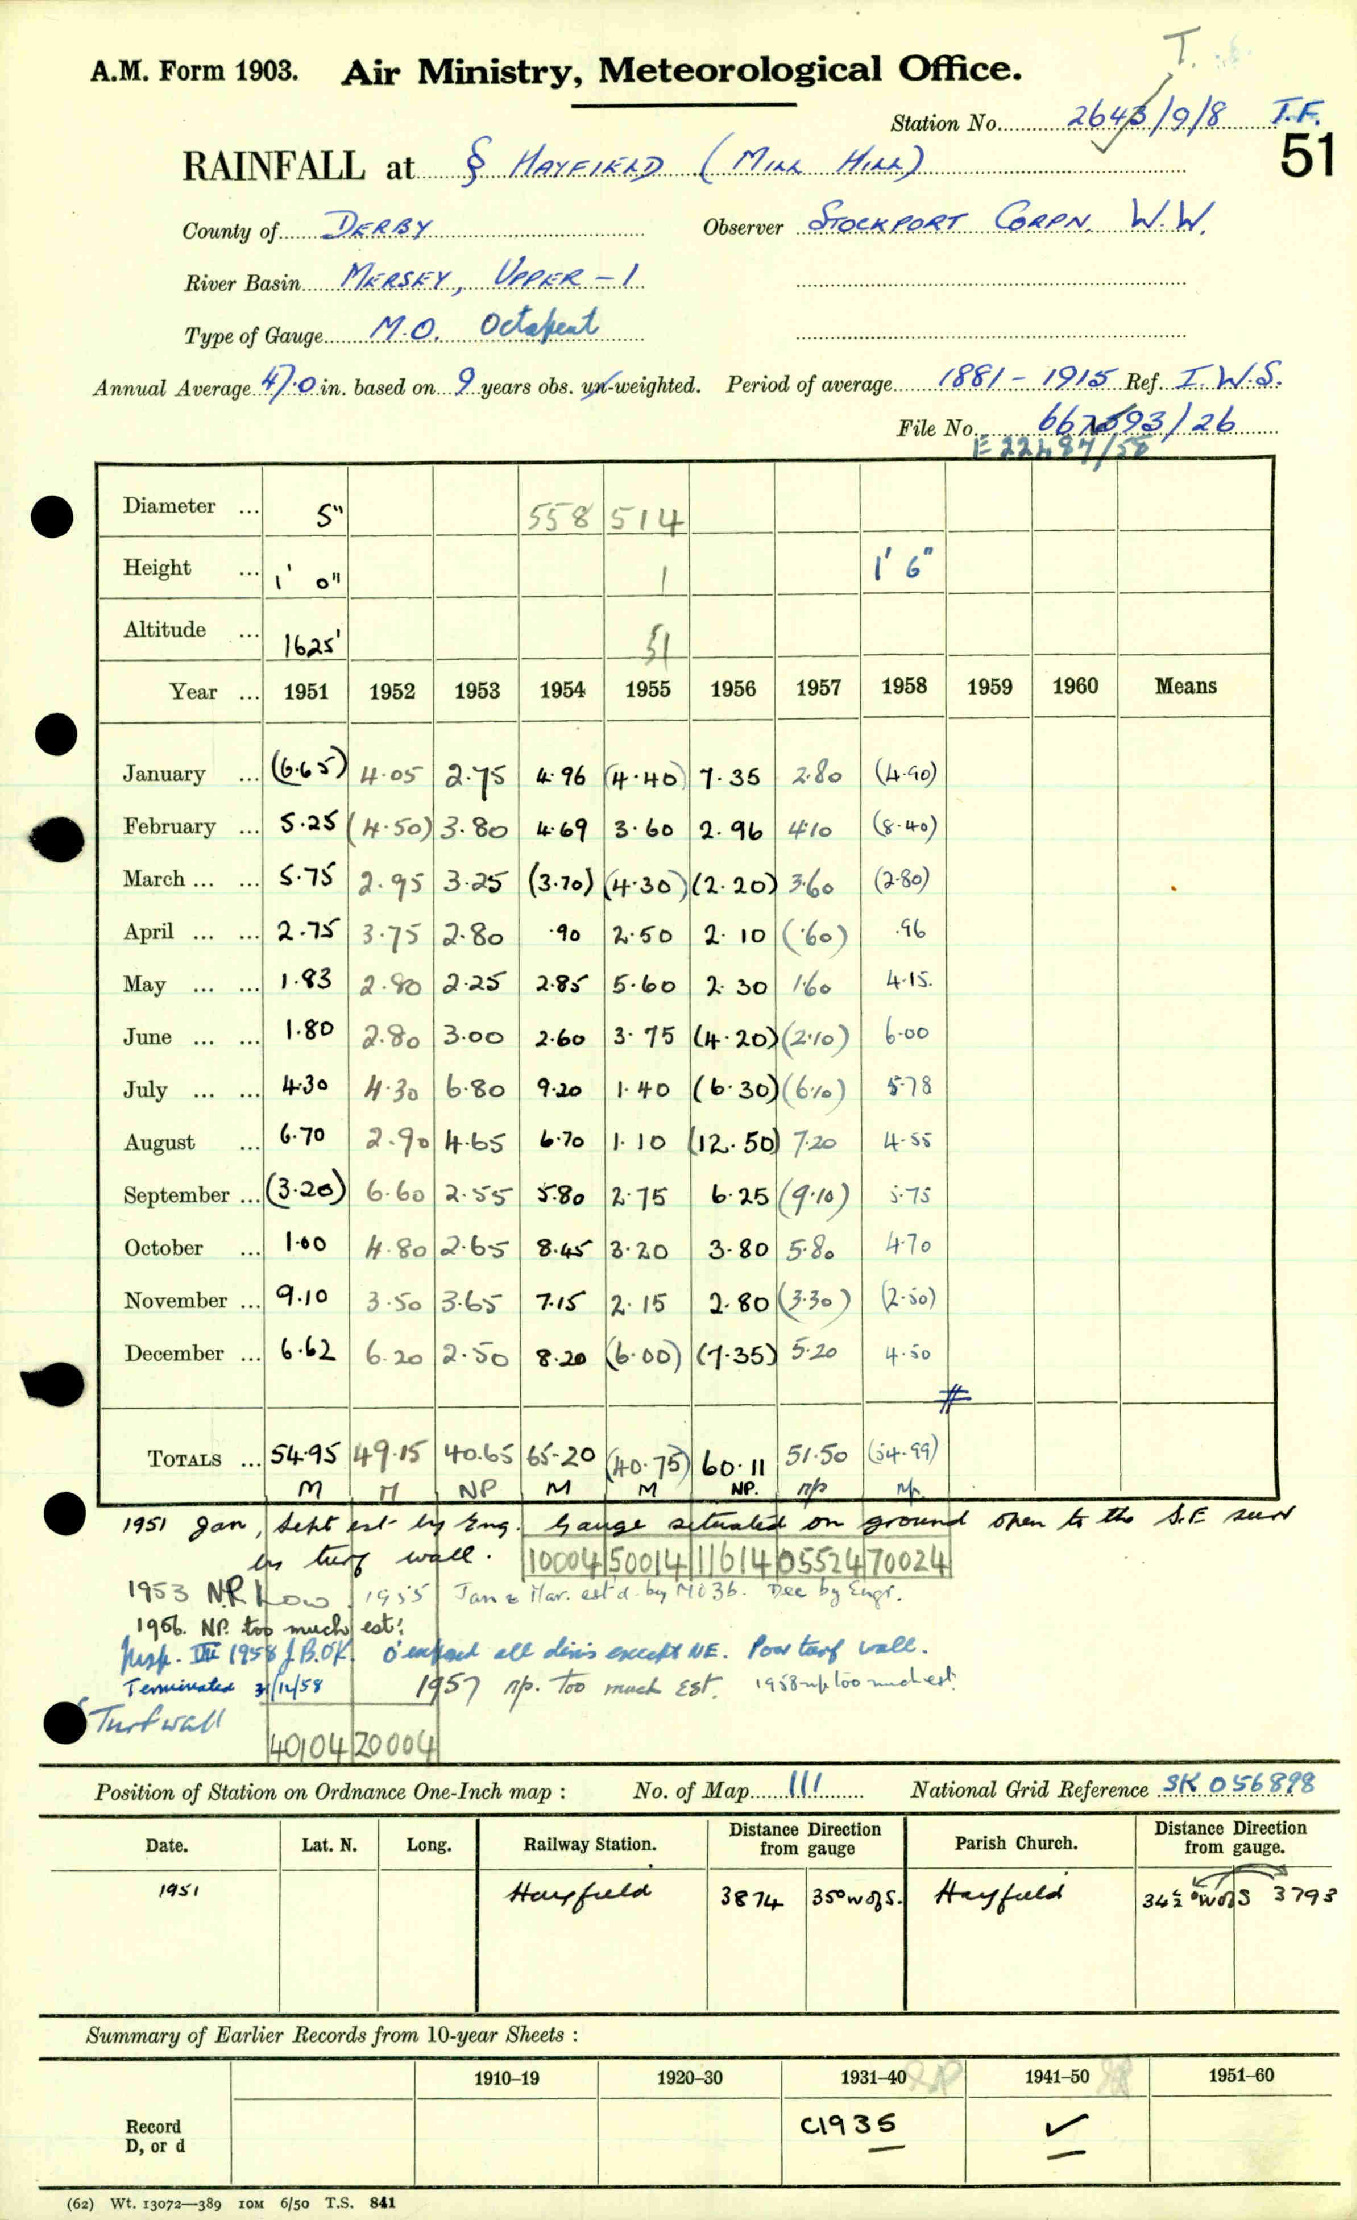 T.
A.M. Form 1903. Air Ministry, Meteorological Office.
Station No. 2643/9/8 T.F.
51
RAINFALL at § HAYFIELD (MILL HILL)
County of DERBY Observer STOCKPORT CORPN. W.W.
River Basin MERSEY, UPPER - 1
Type of Gauge M.O. Octapent
Annual Average 47.0 in. based on 9 years obs. un-weighted. Period of average 1881 - 1915 Ref. I.W.S.
File No. 667593/26
E 22487/58
Diameter ... 5" 558 514
Height ... 1' 0" 1 1' 6"
Altitude ... 1625' 51
Year ... 1951 1952 1953 1954 1955 1956 1957 1958 1959 1960 Means
January ... (6.65) 4.05 2.75 4.96 (4.40) 7.35 2.80 (4.90)
February ... 5.25 (4.50) 3.80 4.69 3.60 2.96 4.10 (8.40)
March ... ... 5.75 2.95 3.25 (3.70) (4.30) (2.20) 3.60 (2.80)
April ... ... 2.75 3.75 2.80 .90 2.50 2.10 (.60) .96
May ... ... 1.83 2.80 2.25 2.85 5.60 2.30 1.60 4.15.
June ... ... 1.80 2.80 3.00 2.60 3.75 (4.20) (2.10) 6.00
July ... ... 4.30 4.30 6.80 9.20 1.40 (6.30) (6.10) 5.78
August ... 6.70 2.90 4.65 6.70 1.10 (12.50) 7.20 4.55
September ... (3.20) 6.60 2.55 5.80 2.75 6.25 (9.10) 5.75
October ... 1.00 4.80 2.65 8.45 3.20 3.80 5.80 4.70
November ... 9.10 3.50 3.65 7.15 2.15 2.80 (3.30) (2.50)
December ... 6.62 6.20 2.50 8.20 (6.00) (7.35) 5.20 4.50
#
TOTALS ... 54.95 49.15 40.65 65.20 (40.75) 60.11 51.50 (54.99)
M M NP M M NP. np np
1951 Jan, Sept est by Eng. Gauge situated on ground open to the S.E surr
by turf wall. 10004 50014 11614 05524 70024
1953 N.P. Low. 1955 Jan & Mar. est'd by MO3b. Dec by Engr.
1956. NP. too much est:
Insp. III 1958 J.B. OK. O'exposed all dirns except NE. Poor turf wall.
Terminated 31/12/58 1957 np. too much Est. 1958 np too much est.
Turf wall
40104 20004
Position of Station on Ordnance One-Inch map : No. of Map 111 National Grid Reference SK 056898
Date. Lat. N. Long. Railway Station. Distance Direction from gauge Parish Church. Distance Direction from gauge.
1951 Hayfield 3874 35° W of S. Hayfield 34½° W of S 3793
Summary of Earlier Records from 10-year Sheets :
1910–19 1920–30 1931–40 1941–50 1951–60
Record
D, or d C1935 ✓
(62) Wt. 13072—389 10M 6/50 T.S. 841